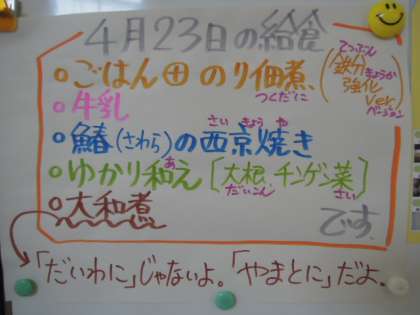 4月23日の給食
・ごはん⊕のり佃煮(鉄分強化ver.)
つくだに
てつぶん
きょうか
バージョン
・牛乳
さいきょうや
・鰆(さわら)の西京焼き
あ
・ゆかり和え[大根、チンゲン菜]
だいこん
さい
・大和煮
です。
「だいわに」じゃないよ。「やまとに」だよ。